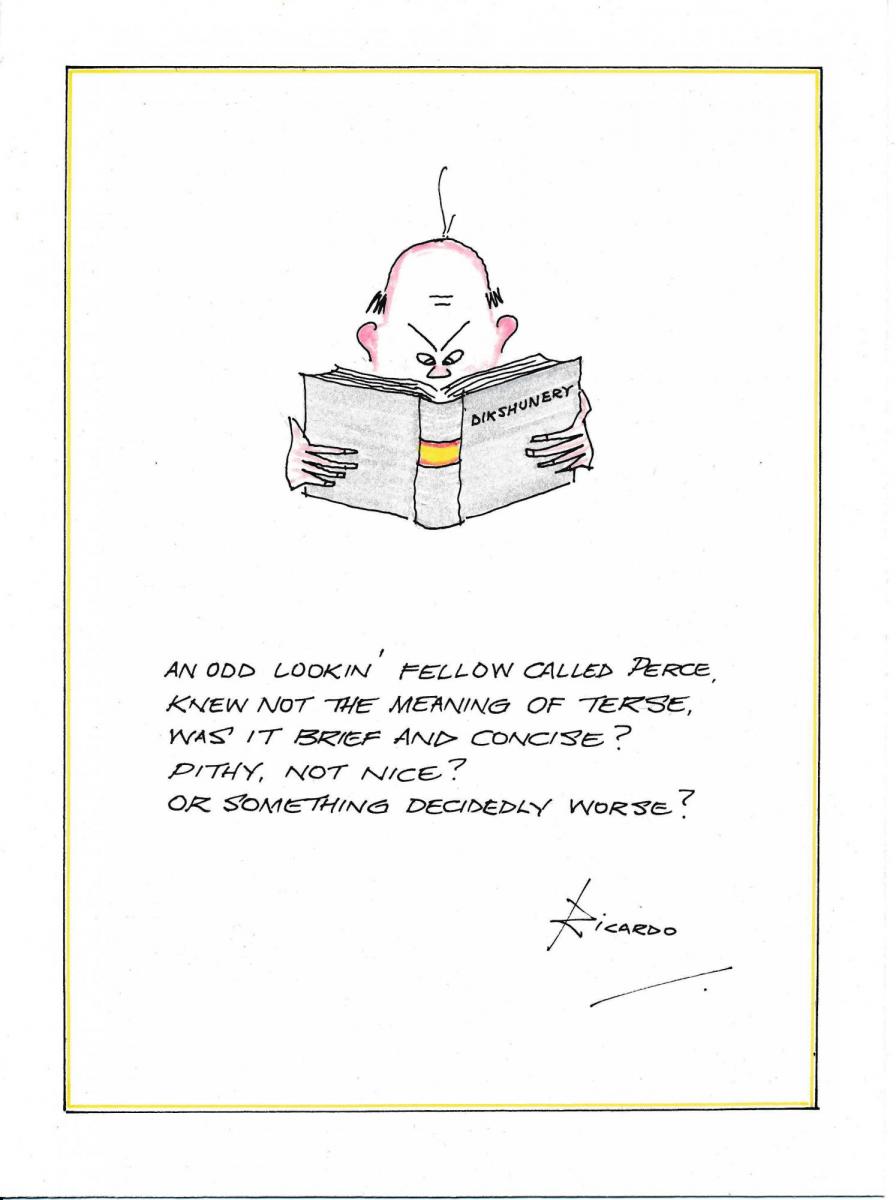 DIKSHUNERY
AN ODD LOOKIN' FELLOW CALLED PERCE,
KNEW NOT THE MEANING OF TERSE,
WAS IT BRIEF AND CONCISE?
PITHY, NOT NICE?
OR SOMETHING DECIDEDLY WORSE?
RICARDO